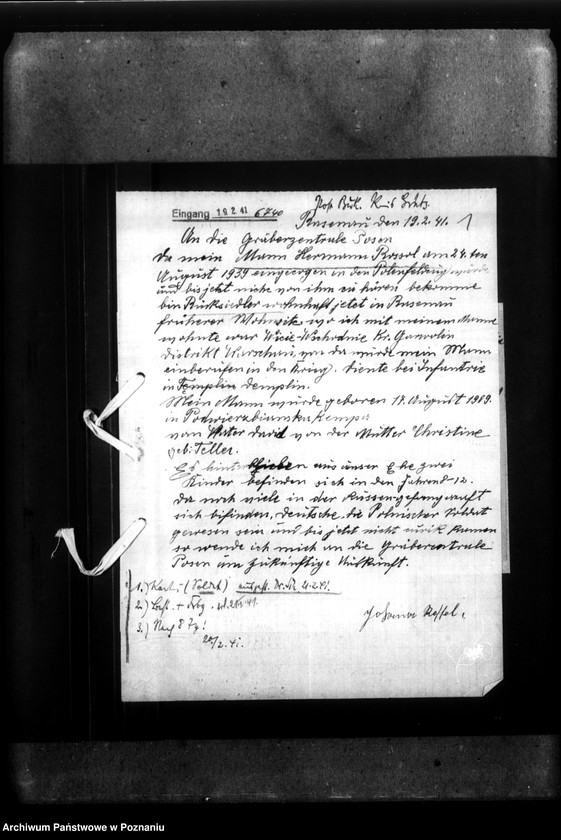 Eingang 19.2.41 6740
Rosenau den 19.2.41. 1
An die Gräberzentrale Posen
Da mein Mann Hermann Rossol am 24. ten
August 1939 eingezogen in den Polenfeldzug wurde
und bis jetzt nichts von ihm zu hören bekomme
bin Rücksiedler wohnhaft jetzt in Rosenau
früherer Wohnsitz wo ich mit meinem Manne
wohnte war Kr. Garwolin
distrikt Warschau, von da wurde mein Mann
einberufen in den Krieg. diente bei Infantrie
in
Mein Mann wurde geboren 17. August 1909.
in Podwierzbianka Kempa
vom Vater david von der Mutter Christine
geb. Teller.
Es aus unser Ehe zwei
Kinder befinden sich in den Jahren 1-12.
Da noch viele in der Russengefangenschaft
sich befinden, deutsche die Polnischer Soldat
gewesen sein und bis jetzt nicht zurik kamen
so wende ich mich an die Gräbercentrale
Posen um zukünftige Auskunft.
1.)
2.)
3.)
/2.41.
Johanna Rossol.
Archiwum Państwowe w Poznaniu